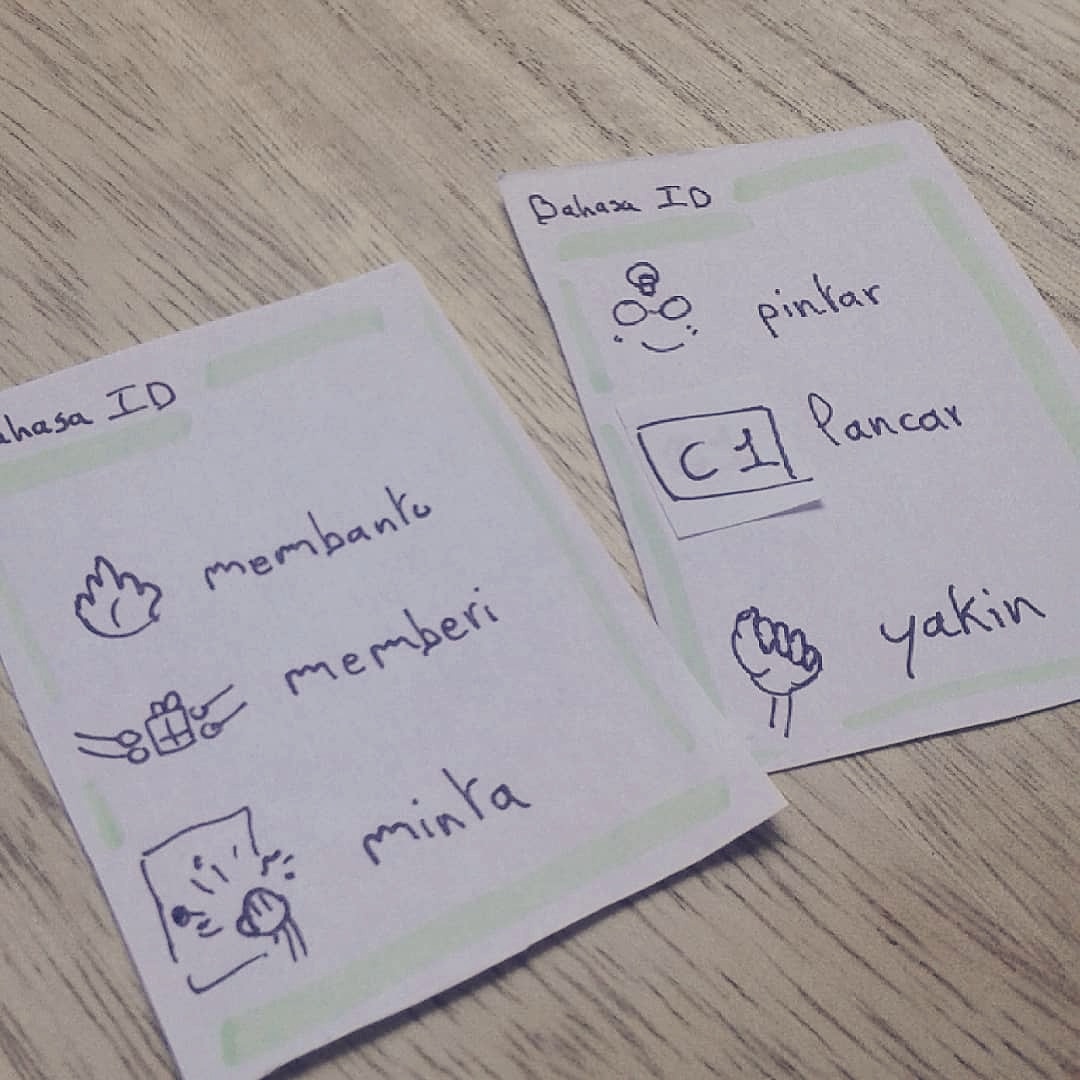 ahasa ID
membantu
memberi
minta
Bahasa ID
pintar
C1
lancar
yakin